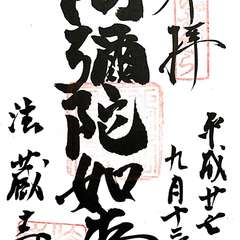 奉拝
平成廿七
九月十三
阿彌陀如来
法蔵寺